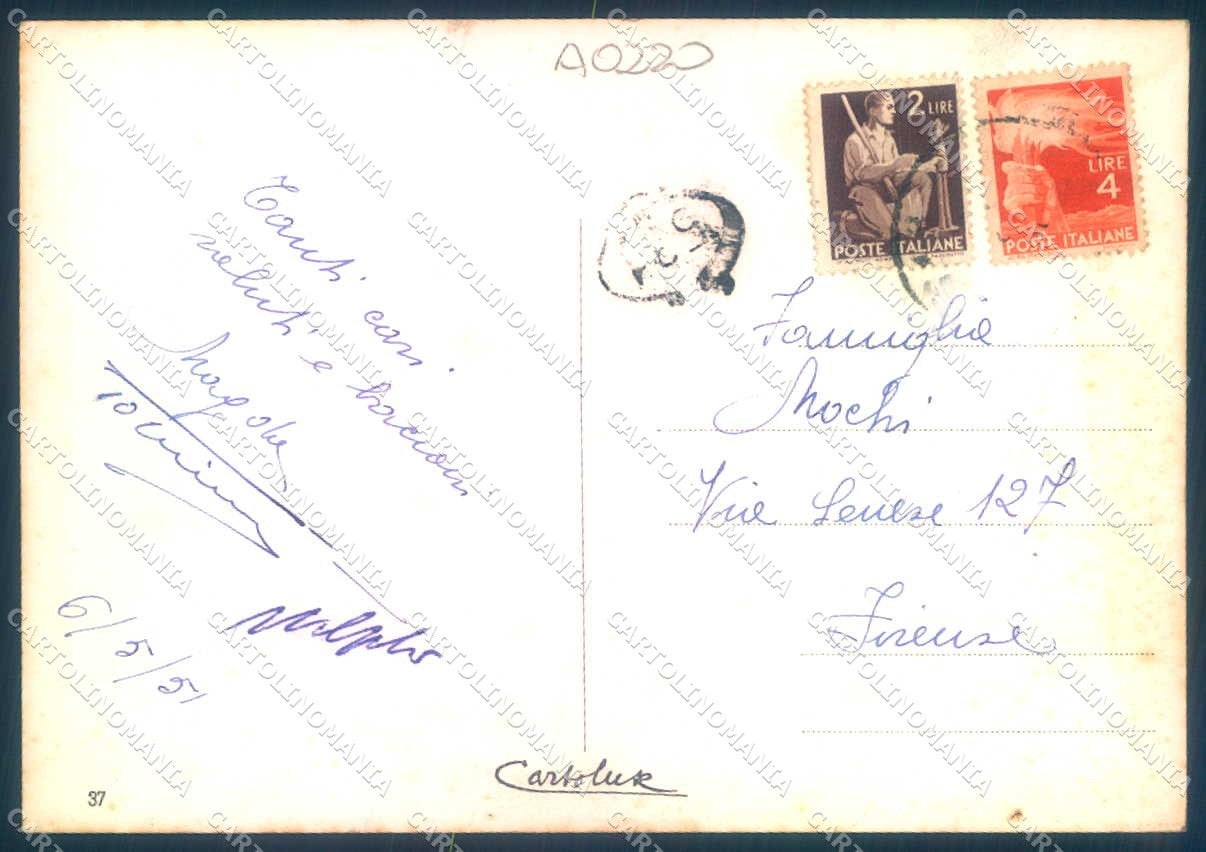 A0220
2 LIRE
POSTE ITALIANE
LIRE
4
POSTE ITALIANE
Tanti cari
saluti e bacioni
6/5/51
Famiglia
Mochi
Via Senese 127
Firenze
Cartolux
37
CARTOLINOMANIA